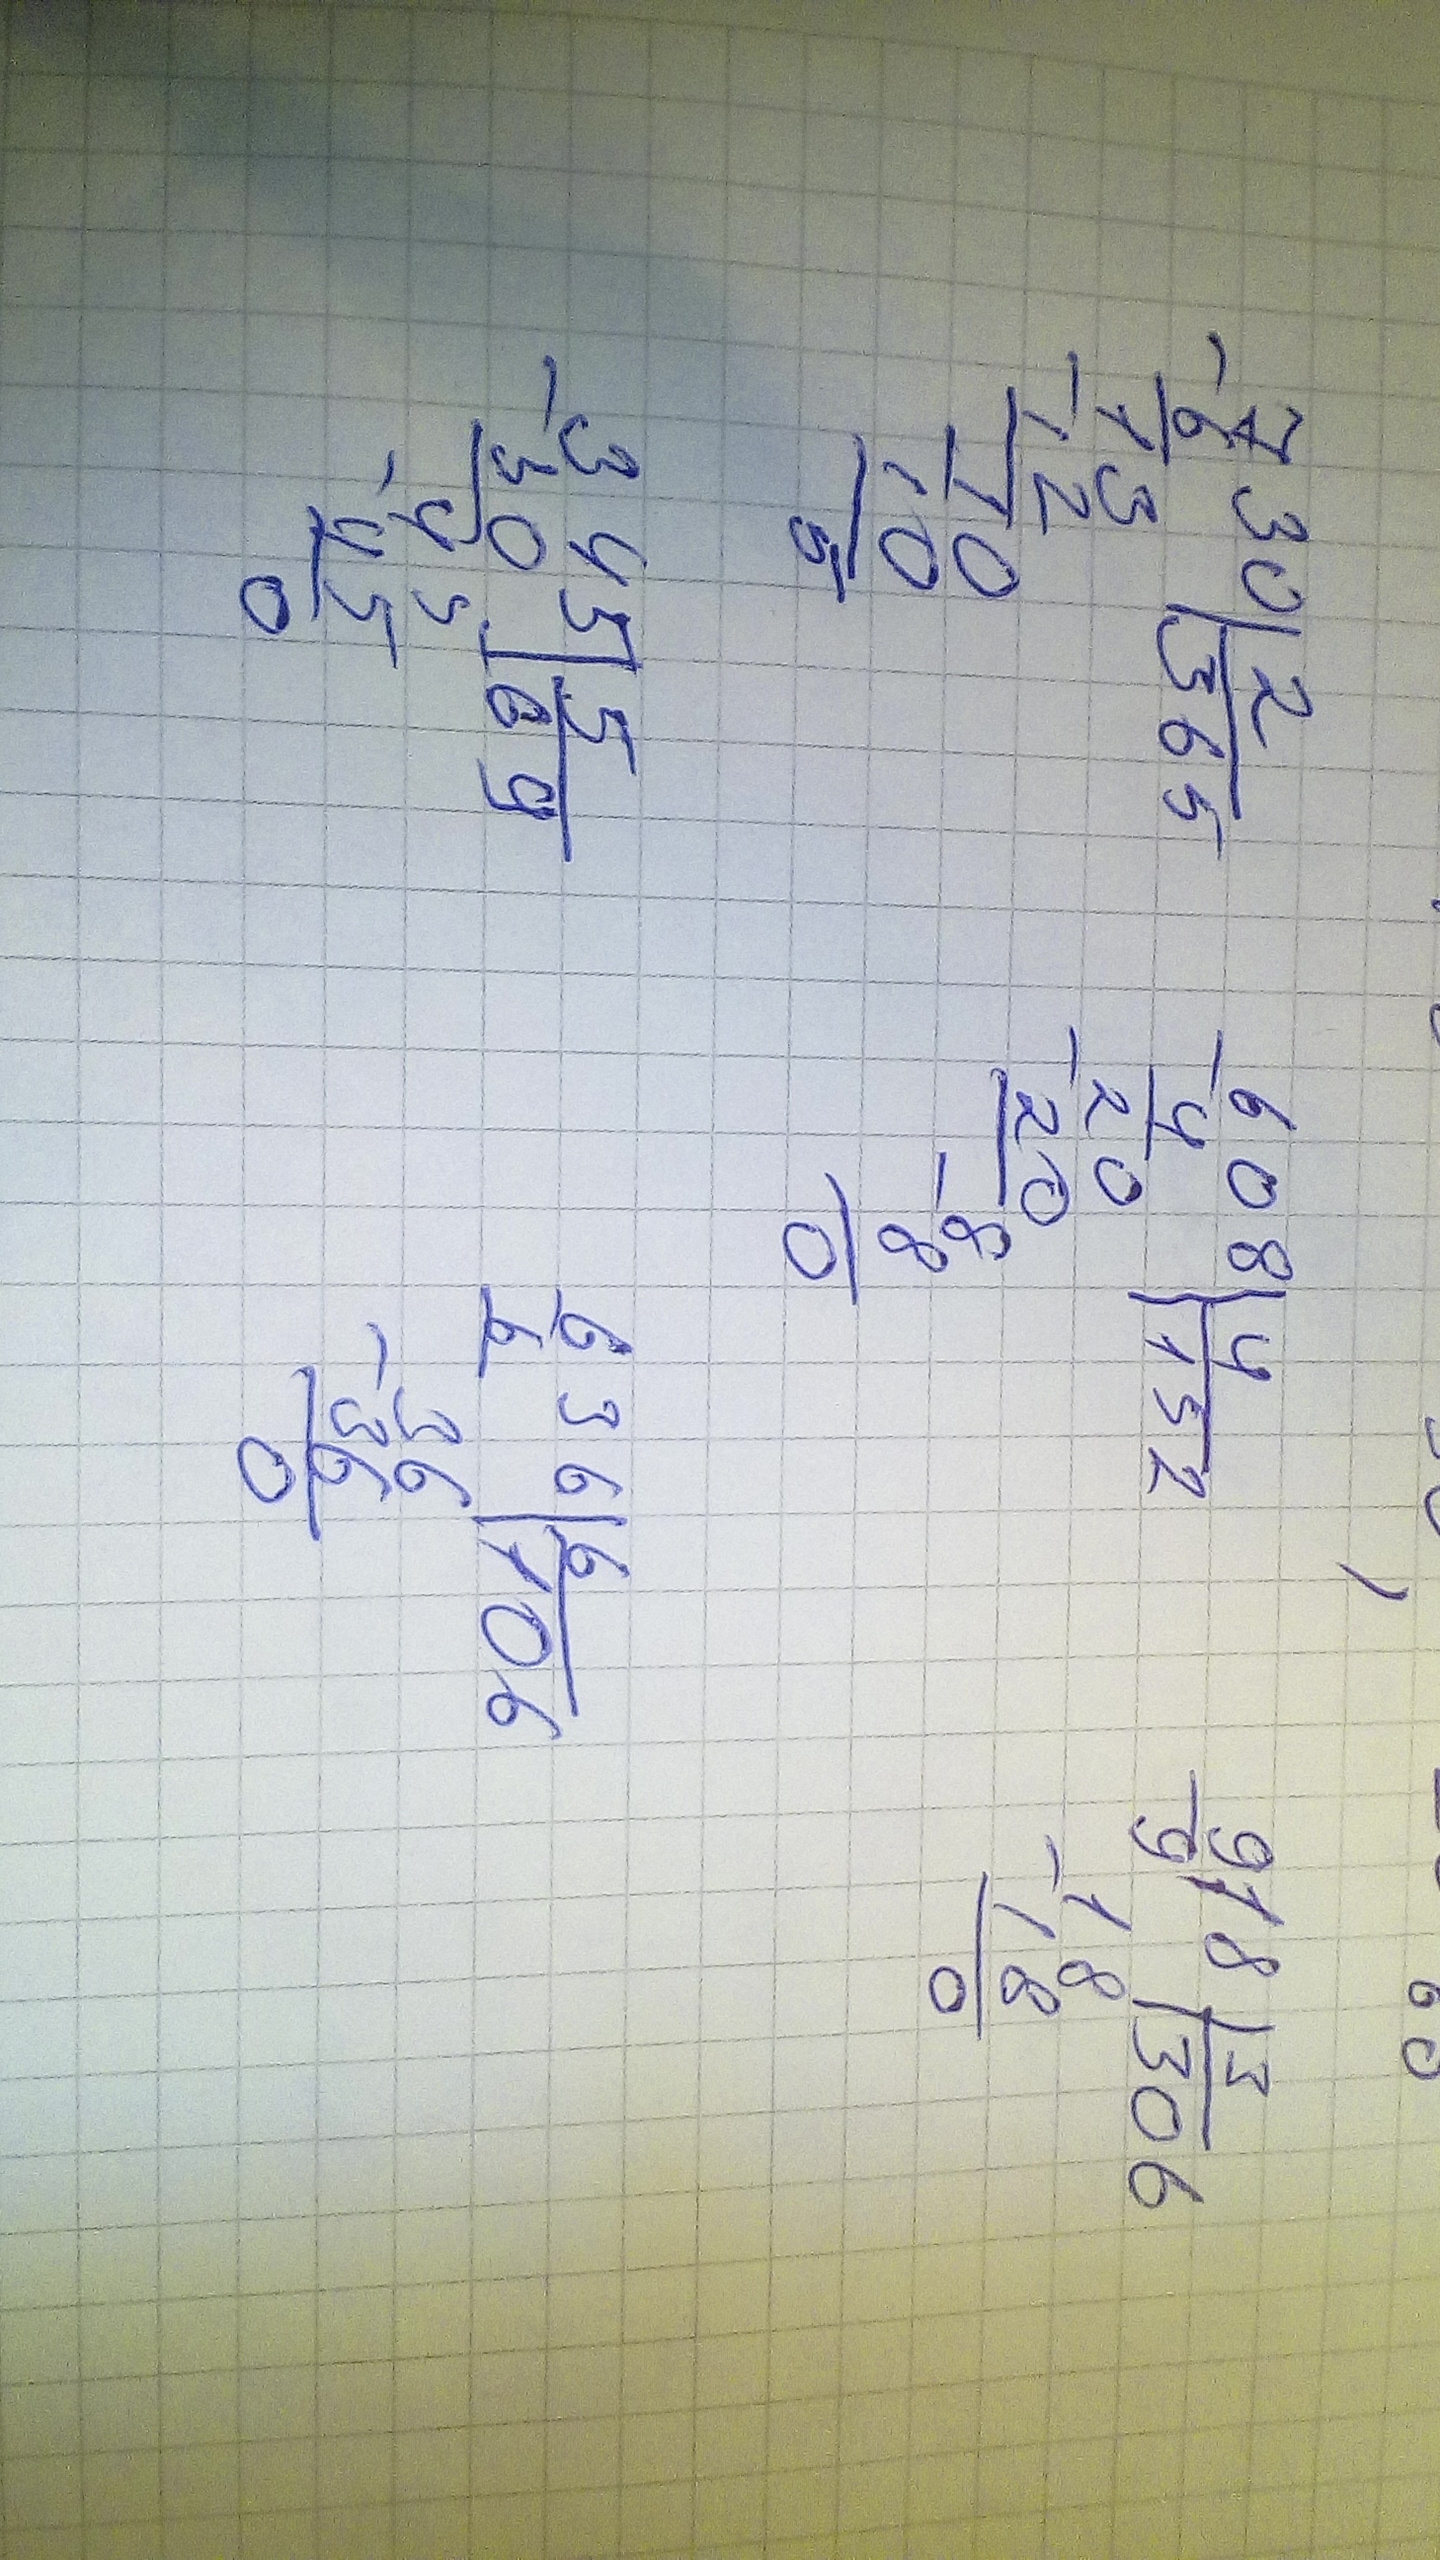 730|2
6 365
13
12
10
10
0
608|4
4 152
20
20
8
8
0
918|3
9 306
18
18
0
345|5
30 69
45
45
0
636|6
6 106
36
36
0
60